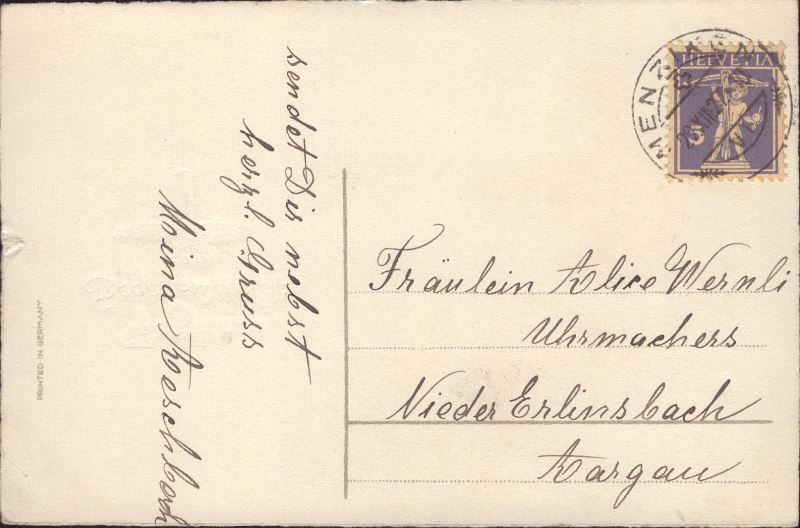 sendet Dir nebst
herzl. Gruss
Mina Aeschbach
Fräulein Alice Wernli
Uhrmachers
Nieder Erlinsbach
Aargau
HELVETIA
MENZIKEN
PRINTED IN GERMANY